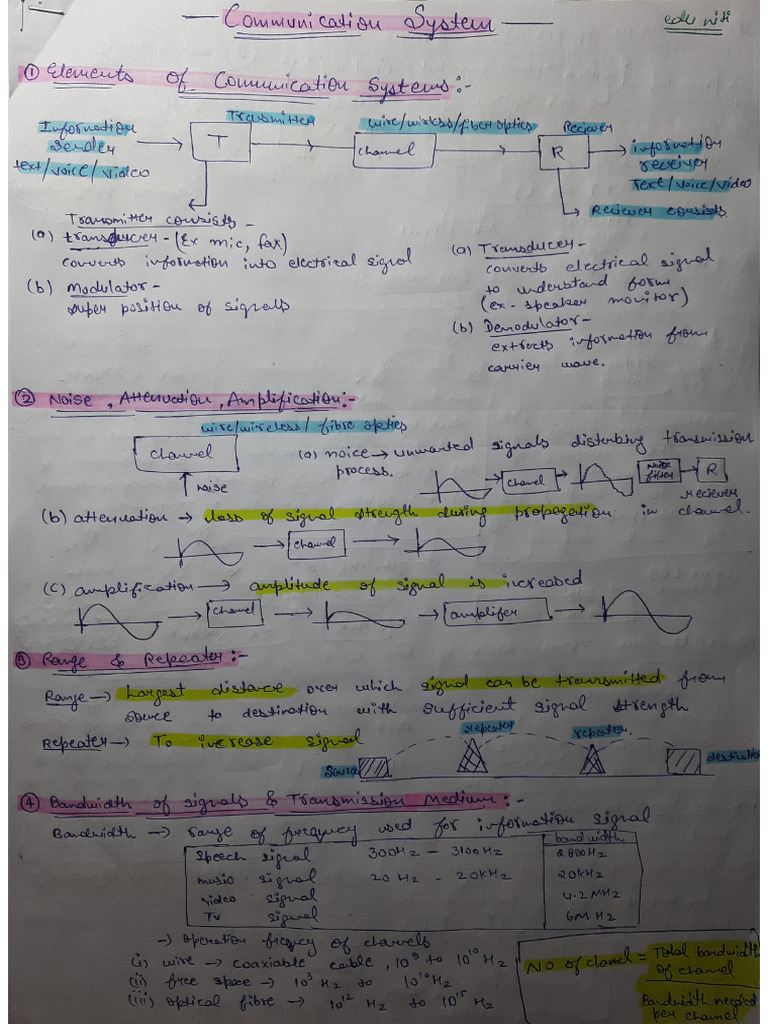 Communication System
edu niti
① Elements of Communication Systems:-
Information sender text/voice/video
T
Transmitter
wire/wireless/fiber optics
channel
Reciever
R
information receiver Text/voice/video
Transmitter consists -
(a) transducer - (Ex mic, fax)
converts information into electrical signal
(b) Modulator -
super position of signals
Reciever consists
(a) Transducer -
converts electrical signal
to understand form
(ex - speaker monitor)
(b) Demodulator -
extracts information from
carrier wave.
② Noise, Attenuation, Amplification:-
wire/wireless/fibre optics
channel
Noise
(a) noice → unwanted signals disterbing transmission
process.
channel
Noise filter
R
reciever
(b) attenuation → loss of signal strength during propogation in channel.
channel
(C) amplification → amplitude of signal is increased
channel
amplifer
③ Range & Repeater:-
Range → Largest distance over which signal can be transmitted from
source to destination with sufficient signal strength
Repeater → To increase signal
source
repeater
repeater
destination
④ Bandwidth of signals & Transmission Medium:-
Bandwidth → range of frequency used for information signal
bandwidth
speech signal 300Hz - 3100Hz 2800Hz
music signal 20 Hz - 20kHz 20kHz
video signal 4.2 MHz
TV signal 6MHz
→ operation freqncy of channels
(i) wire → coaxiable cable, 10^9 to 10^10 Hz
(ii) free space → 10^3 Hz to 10^10 Hz
(iii) optical fibre → 10^12 Hz to 10^15 Hz
NO of channel = Total bandwidth of channel
Bandwidth needed per channel